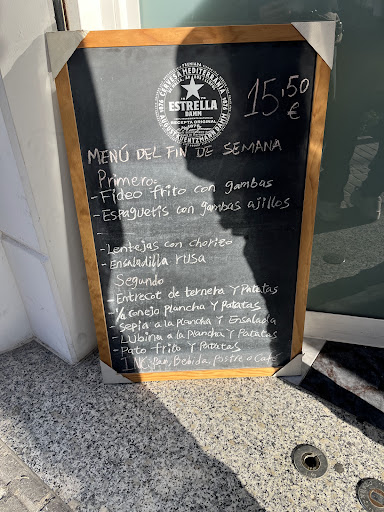 CERVEZA MEDITERRÁNEA
1876
1876
ESTRELLA
DAMM
RECEPTA ORIGINAL
15,50 €
MENÚ DEL FIN DE SEMANA
Primero:
- Fideo frito con gambas
- Espaguetis con gambas ajillos
- Lentejas con chorizo
- Ensaladilla rusa
Segundo
- Entrecot de ternera y Patatas
- ½ conejo plancha y Patatas
- sepia a la plancha i Ensalada
- Lubina a la plancha y Patatas
- Pato frito y Patatas
INC. Pan, Bebida, Postre o Café